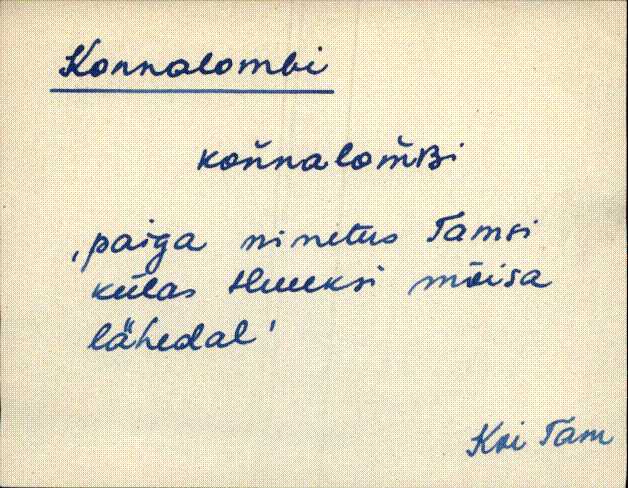 Konnalombi
koǹnalom̀ʙi
‚paiga nimetus Tamsi
külas Huuksi mõisa
lähedal'
Koi Tam